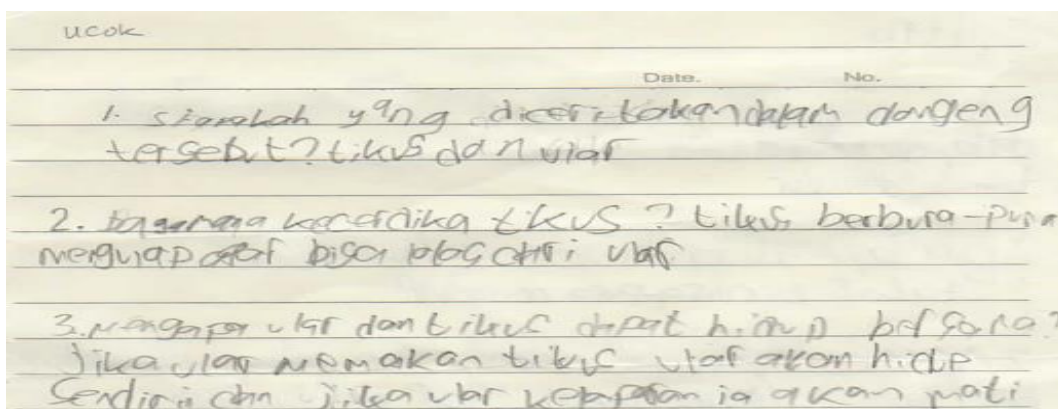 ucok
Date. No.
1. siapakah yang diceritakan dalam dongeng
tersebut? tikus dan ular
2. kecerdika tikus? tikus berbura-pura
menguap agar bisa ular
3. mengapa ular dan tikus dapat hidup bersama?
jika ular memakan tikus ular akan hidp
sendiri dan jika ular kelaparan ia akan mati